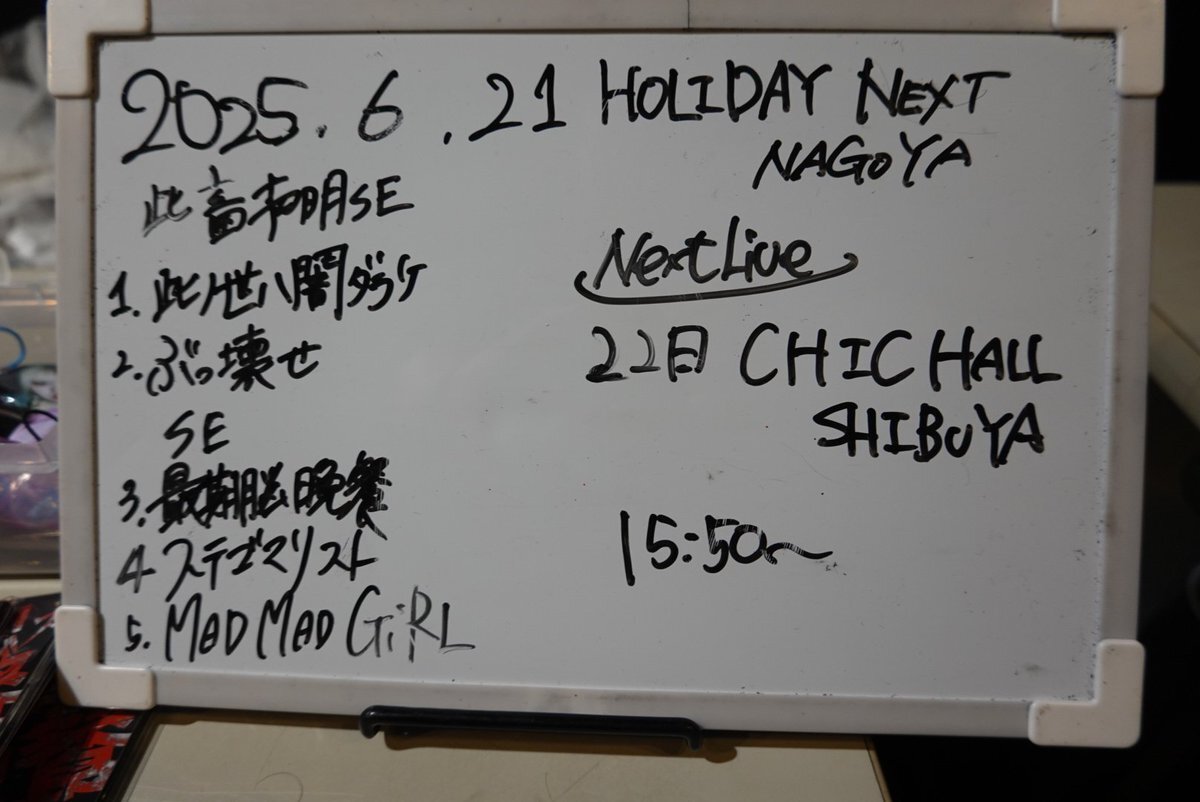 2025.6.21 HOLIDAY NEXT
NAGOYA
SE
1. 此ノ世ハ闇ダラケ
2. ぶっ壊せ
SE
3. 最期脳晩餐
4 ステゴマリスト
5. MAD MAD GiRL
Next Live
22日 CHIC HALL
SHIBUYA
15:50~